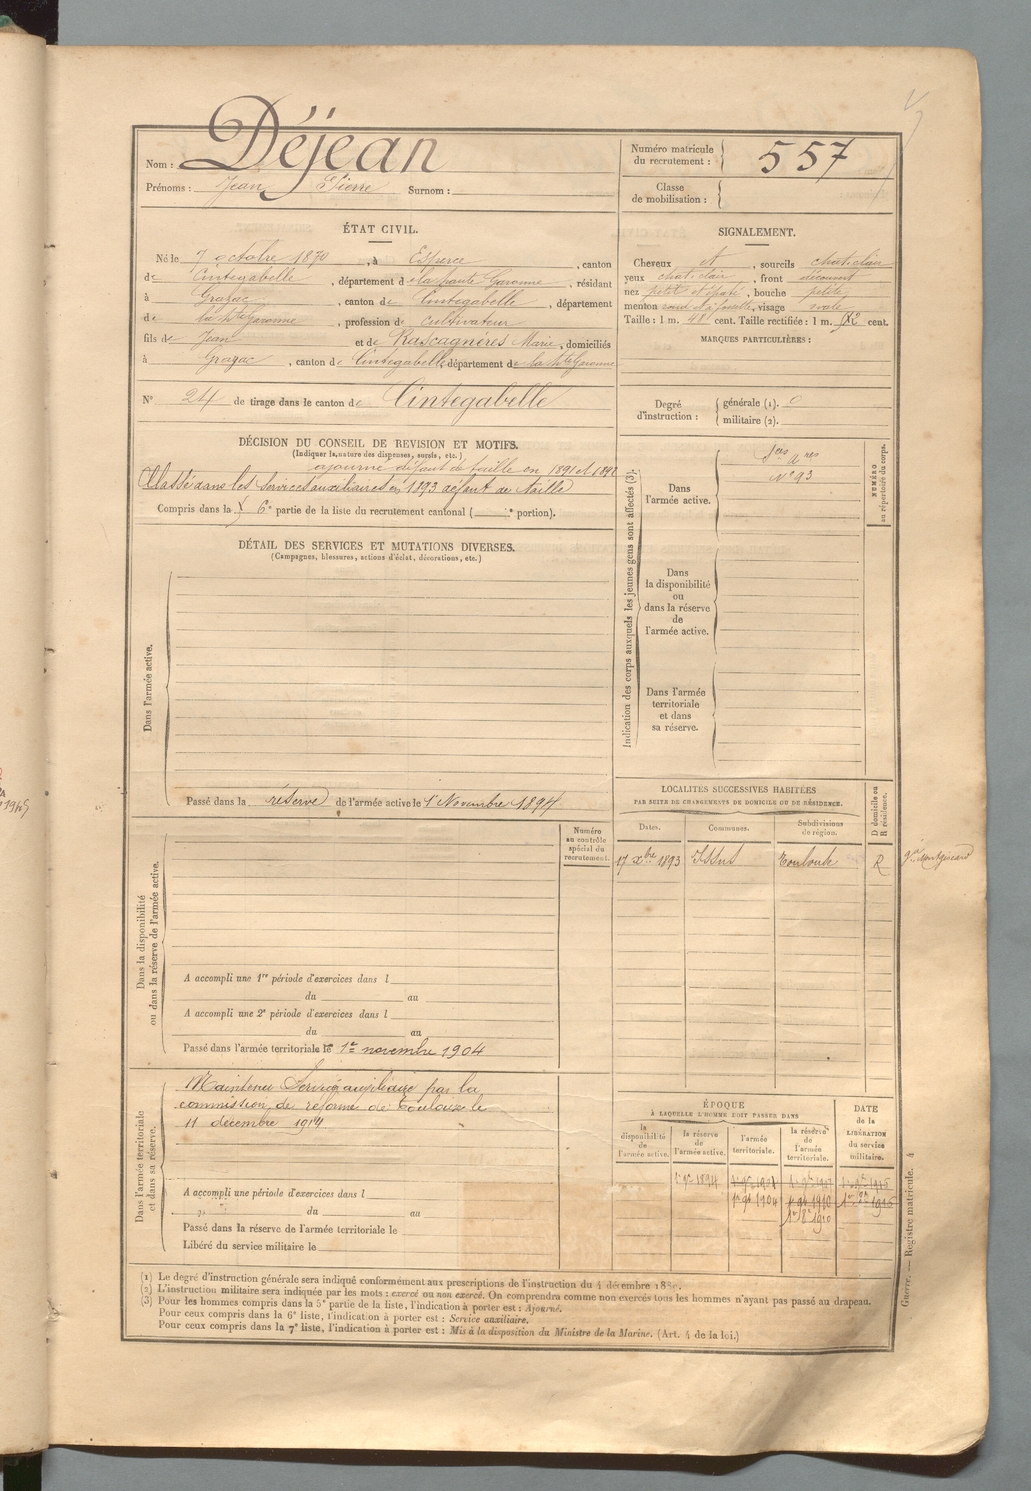 Nom : Déjean
Prénoms : Jean Pierre Surnom :
Numéro matricule du recrutement : 557
Classe de mobilisation :
ÉTAT CIVIL.
Né le 7 octobre 1870, à Esperce, canton
de Cintegabelle, département de la haute Garonne, résidant
à Grazac, canton de Cintegabelle, département
de la Hte Garonne, profession de cultivateur
fils de Jean et de Rascagnères Marie, domiciliés
à Grazac, canton de Cintegabelle, département de la Hte Garonne
N° 24 de tirage dans le canton de Cintegabelle
SIGNALEMENT.
Cheveux et, sourcils chat. clair
yeux chat. clair, front découvert
nez petit et épaté, bouche petite
menton rond et à fossette, visage ovale
Taille : 1 m. 48 cent. Taille rectifiée : 1 m. 52 cent.
MARQUES PARTICULIÈRES :
Degré d'instruction :
générale (1). 0
militaire (2).
DÉCISION DU CONSEIL DE REVISION ET MOTIFS.
(Indiquer la nature des dispenses, sursis, etc.)
ajourné défaut de taille en 1891 et 1892
Classé dans les services auxiliaires en 1893 défaut de taille
Compris dans la 6e partie de la liste du recrutement cantonal ( e portion).
DÉTAIL DES SERVICES ET MUTATIONS DIVERSES.
(Campagnes, blessures, actions d'éclat, décorations, etc.)
Dans l'armée active.
Passé dans la réserve de l'armée active le 1er Novembre 1894
Indication des corps auxquels les jeunes gens sont affectés (3).
NUMÉRO au répertoire du corps.
Dans l'armée active.
Sces aires
N° 93
Dans la disponibilité ou dans la réserve de l'armée active.
Dans l'armée territoriale et dans sa réserve.
LOCALITÉS SUCCESSIVES HABITÉES
PAR SUITE DE CHANGEMENTS DE DOMICILE OU DE RÉSIDENCE.
Dates. Communes. Subdivisions de région. D domicile ou R résidence.
17 Xbre 1893 Issus Toulouse R
Dans la disponibilité ou dans la réserve de l'armée active.
Numéro au contrôle spécial du recrutement.
A accompli une 1re période d'exercices dans l
du au
A accompli une 2e période d'exercices dans l
du au
Passé dans l'armée territoriale le 1er novembre 1904
Dans l'armée territoriale et dans sa réserve.
Maintenu Service auxiliaire par la
commission de réforme de Toulouse le
11 décembre 1914
A accompli une période d'exercices dans l
du au
Passé dans la réserve de l'armée territoriale le
Libéré du service militaire le
ÉPOQUE
À LAQUELLE L'HOMME DOIT PASSER DANS
la disponibilité de l'armée active.
la réserve de l'armée active.
l'armée territoriale.
la réserve de l'armée territoriale.
DATE de la LIBÉRATION du service militaire.
1er 9bre 1894
1er 9bre 1904
1er 8bre 1910
(1) Le degré d'instruction générale sera indiqué conformément aux prescriptions de l'instruction du 4 décembre 1889.
(2) L'instruction militaire sera indiquée par les mots : exercé ou non exercé. On comprendra comme non exercés tous les hommes n'ayant pas passé au drapeau.
(3) Pour les hommes compris dans la 5e partie de la liste, l'indication à porter est : Ajourné.
Pour ceux compris dans la 6e liste, l'indication à porter est : Service auxiliaire.
Pour ceux compris dans la 7e liste, l'indication à porter est : Mis à la disposition du Ministre de la Marine. (Art. 4 de la loi.)
Guerre. — Registre matricule. 4